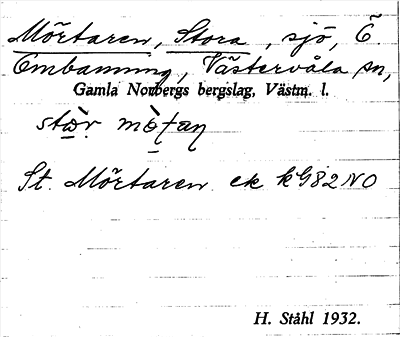 Mörtaren, Stora, sjö, Ö.
Ombenning, Västervåla sn,
Gamla Norbergs bergslag, Västm. l.
St. Mörtaren ek kG82NO
H. Ståhl 1932.